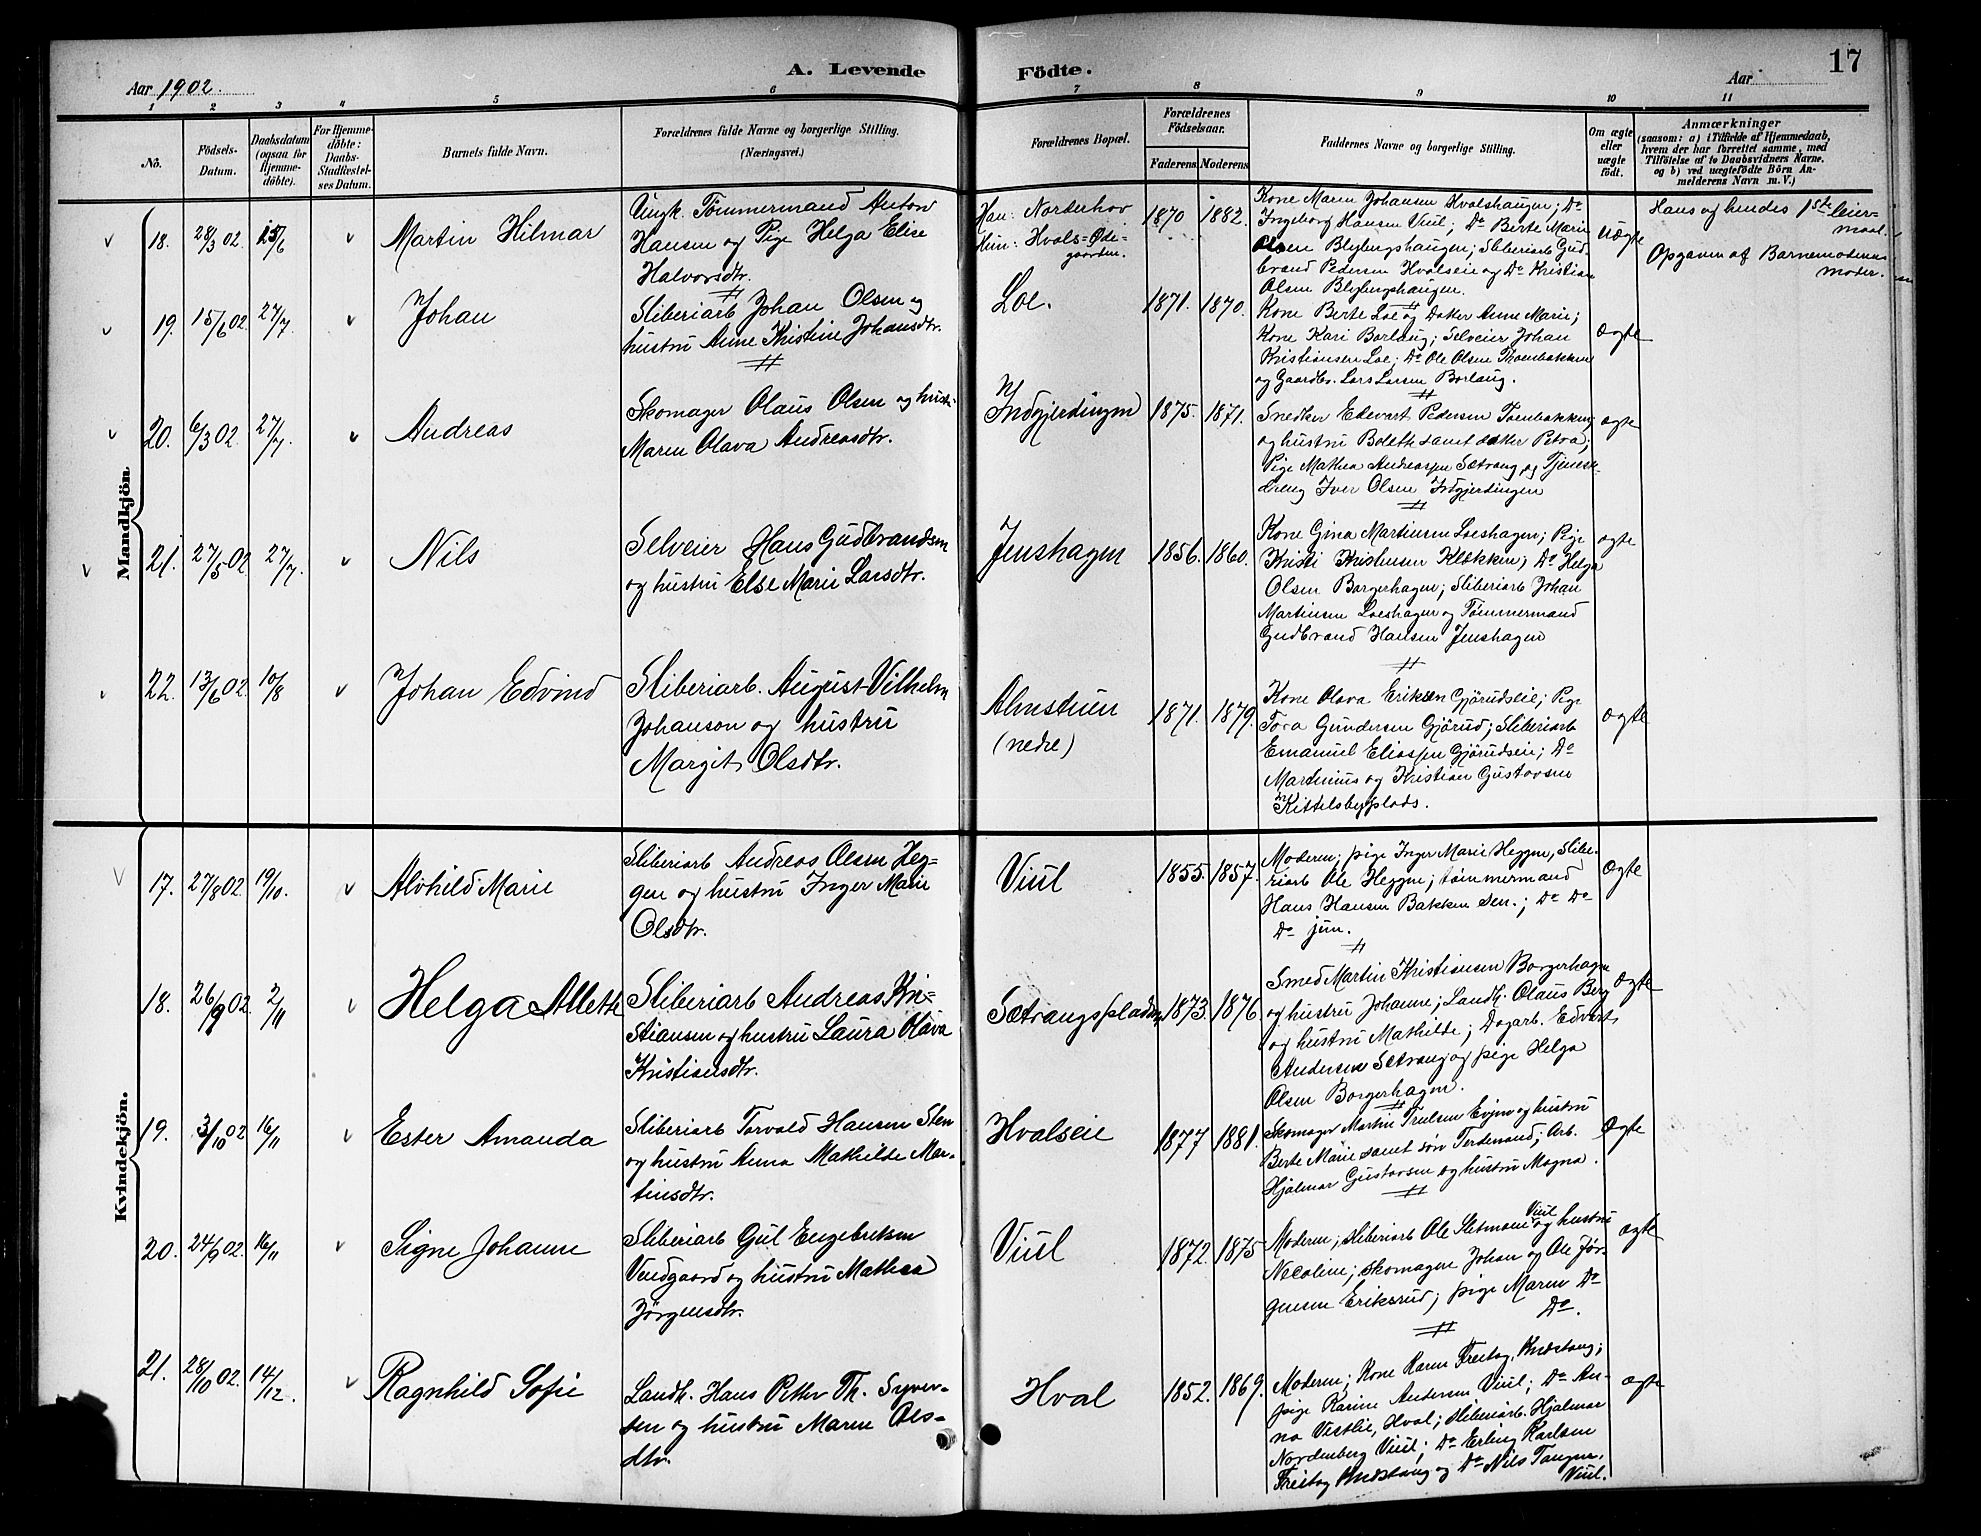 Aar 1902.
A. Levende
Födte.
Aar
17
1 2 3 4 5 6 7 8 9 10 11
No.
Födsels-
Datum.
Daabsdatum
(ogsaa for
Hjemme-
döbte).
For Hjemme-
döbte:
Daabs-
Stadfæstel-
ses Datum.
Barnets fulde Navn.
Forældrenes fulde Navne og borgerlige Stilling.
(Næringsvei.)
Forældrenes Bopæl.
Forældrenes
Födselsaar.
Faderens Moderens
Faddernes Navne og borgerlige Stilling.
Om ægte
eller
uægte
födt.
Anmærkninger
(saasom: a) i Tilfælde af Hjemmedaab,
hvem der har forrettet samme, med
Tilföielse af to Daabsvidners Navne.
og b) ved uægtefödte Börn An-
melderens Navn m. V.)
Mandkjön
18. 28/3 02. 15/6 v Martin Hilmar
Ungk. Tömmermand Anton
Hansen og Pige Helga Elise
Halvorsdtr.
Han: Norderhov
Hun: Hvals-Öde-
gaarden.
1870 1882.
Kone Maren Johansen Hvalshaugen; Do
Ingeborg Hansen Viul; Do Berte Marie
Olsen Blybergshaugen; Sliberiarb Gud-
brand Pedersen Hvalseie og Do Kristian
Olsen Blybergshaugen.
uægte
Hans og hendes 1ste leier-
maal.
Opgaven af Barnemoderens
moder.
19. 15/6 02. 27/7. v Johan
Sliberiarb Johan Olsen og
hustru Anne Kristine Johansdtr.
Loe.
1871. 1870.
Kone Berte Loe og Datter Anne Marie;
Kone Kari Borlaug; Selveier Johan
Kristiansen Loe; Do Ole Olsen Moenbakken
og Gaardbr. Lars Larsen Borlaug.
ægte
20. 6/3 02. 27/7. v Andreas
Skomager Olaus Olsen og hustru
Maren Olava Andreasdtr.
Indgjerdingen
1875. 1871.
Snedker Edevart Pedersen Toenbakken
og hustru Bolette samt datter Petra;
Pige Mathea Andreassen Sætrang og Tjeneste-
dreng Iver Olsen Indgjerdingen
ægte
21. 27/5 02 27/7. v Nils
Selveier Hans Gudbrandsen
og hustru Else Marie Larsdtr.
Jenshagen
1856. 1860.
Kone Gina Martinsen Loeshagen; Pige
Kristi Kristensen Klækken; Do Helga
Olsen Borgerhagen; Sliberiarb Johan
Martinsen Loeshagen og Tömmermand
Gudbrand Hansen Jenshagen
ægte
22. 13/6 02. 10/8 v Johan Edvind
Sliberiarb. August Vilhelm
Johanson og hustru
Margit Olsdtr.
Almstuen
(nedre)
1871. 1879.
Kone Olava Eriksen Gjörudseie; Pige
Tora Gundersen Gjörud; Sliberiarb
Emanuel Eliassen Gjörudseie; Do
Martinius og Kristian Gustavsen
Kittelsbyplads.
ægte
Kvindekjön.
17. 27/8 02. 19/10. v Alvhild Marie
Sliberiarb Andreas Olsen Heg-
gen og hustru Inger Marie
Olsdtr.
Viul
1855. 1857.
Moderen; pige Inger Marie Heggen, Slibe-
riarb Ole Heggen; tömmermand
Hans Hansen Bakken sen.; Do Do
Do jun.
Ægte
18. 26/9 02. 2/11 v Helga Alette
Sliberiarb Andreas Kri-
stiansen og hustru Laura Olava
Kristiansdtr.
Sætrangspladsen
1873. 1876
Smed Martin Kristiansen Borgerhagen
og hustru Johanne; Landh. Olaus Berg
og hustru Mathilde; Dagarb. Edvart
Andersen Sætrang og pige Helga
Olsen Borgerhagen.
Ægte
19. 3/10 02 16/11 v Ester Amanda
Sliberiarb Torvald Hansen Sten
og hustru Anna Mathilde Mar-
tinsdtr.
Hvalseie
1877 1881.
Skomager Martin Truelsen Evjen og hustru
Berte Marie samt sön Ferdinand; Arb.
Hjalmar Gustavsen og hustru Magna.
Ægte
20. 24/9 02. 16/11 v Signe Johanne
Sliberiarb Gul Engebriksen
Vendgaard og hustru Mathea
Jörgensdtr.
Viul
1872. 1875
Moderen; sliberiarb Ole Sletmoen Viul og hustru
Nicoline; skomagere Johan og Ole Jör-
gensen Eriksrud; pige Maren Do
Do.
ægte
21. 28/10 02. 14/12. v Ragnhild Sofie
Landh. Hans Petter Th. Syver-
sen og hustru Maren Ols-
dtr.
Hval
1852. 1869.
Moderen; Kone Karen Freitag,
pige Karine Andersen Viul; Do An-
na Vestlie, Hval; sliberiarb. Hjalmar
Nordenberg Viul; Do Erling Karlsen
Freitag og Do Nils Tangen,
Viul.
ægte